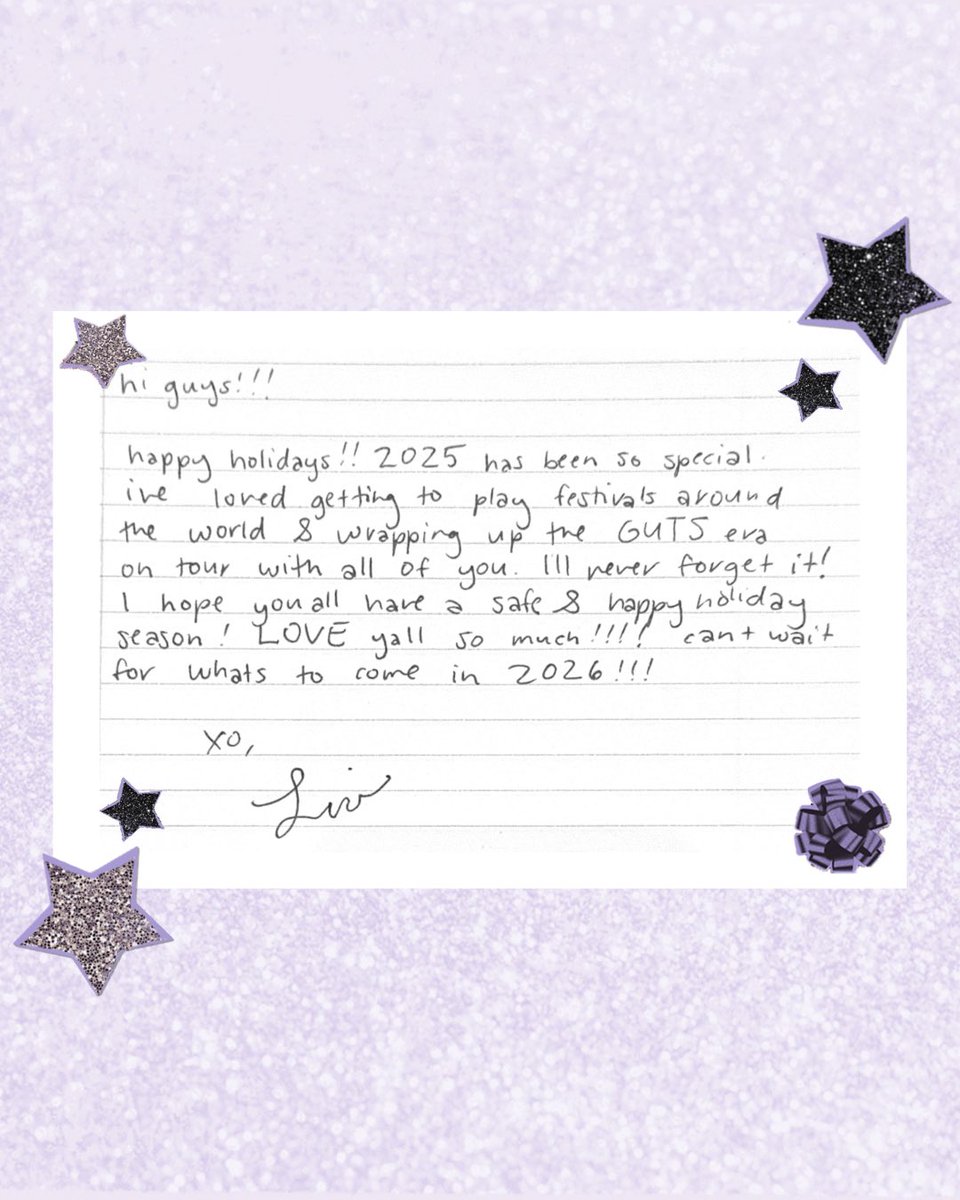 hi guys!!!
happy holidays!! 2025 has been so special.
ive loved getting to play festivals around
the world & wrapping up the GUTS era
on tour with all of you. I'll never forget it!
I hope you all have a safe & happy holiday
season! LOVE yall so much!!!! can't wait
for whats to come in 2026!!!
xo,
Liv